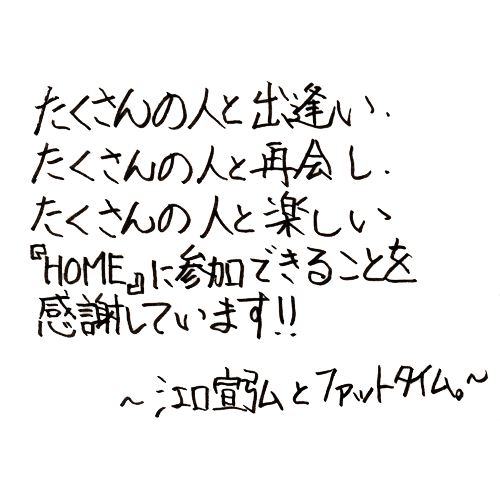 たくさんの人と出逢い.
たくさんの人と再会し.
たくさんの人と楽しい
『HOME』に参加できることを
感謝しています!!
～江口宣弘とファットタイム。～